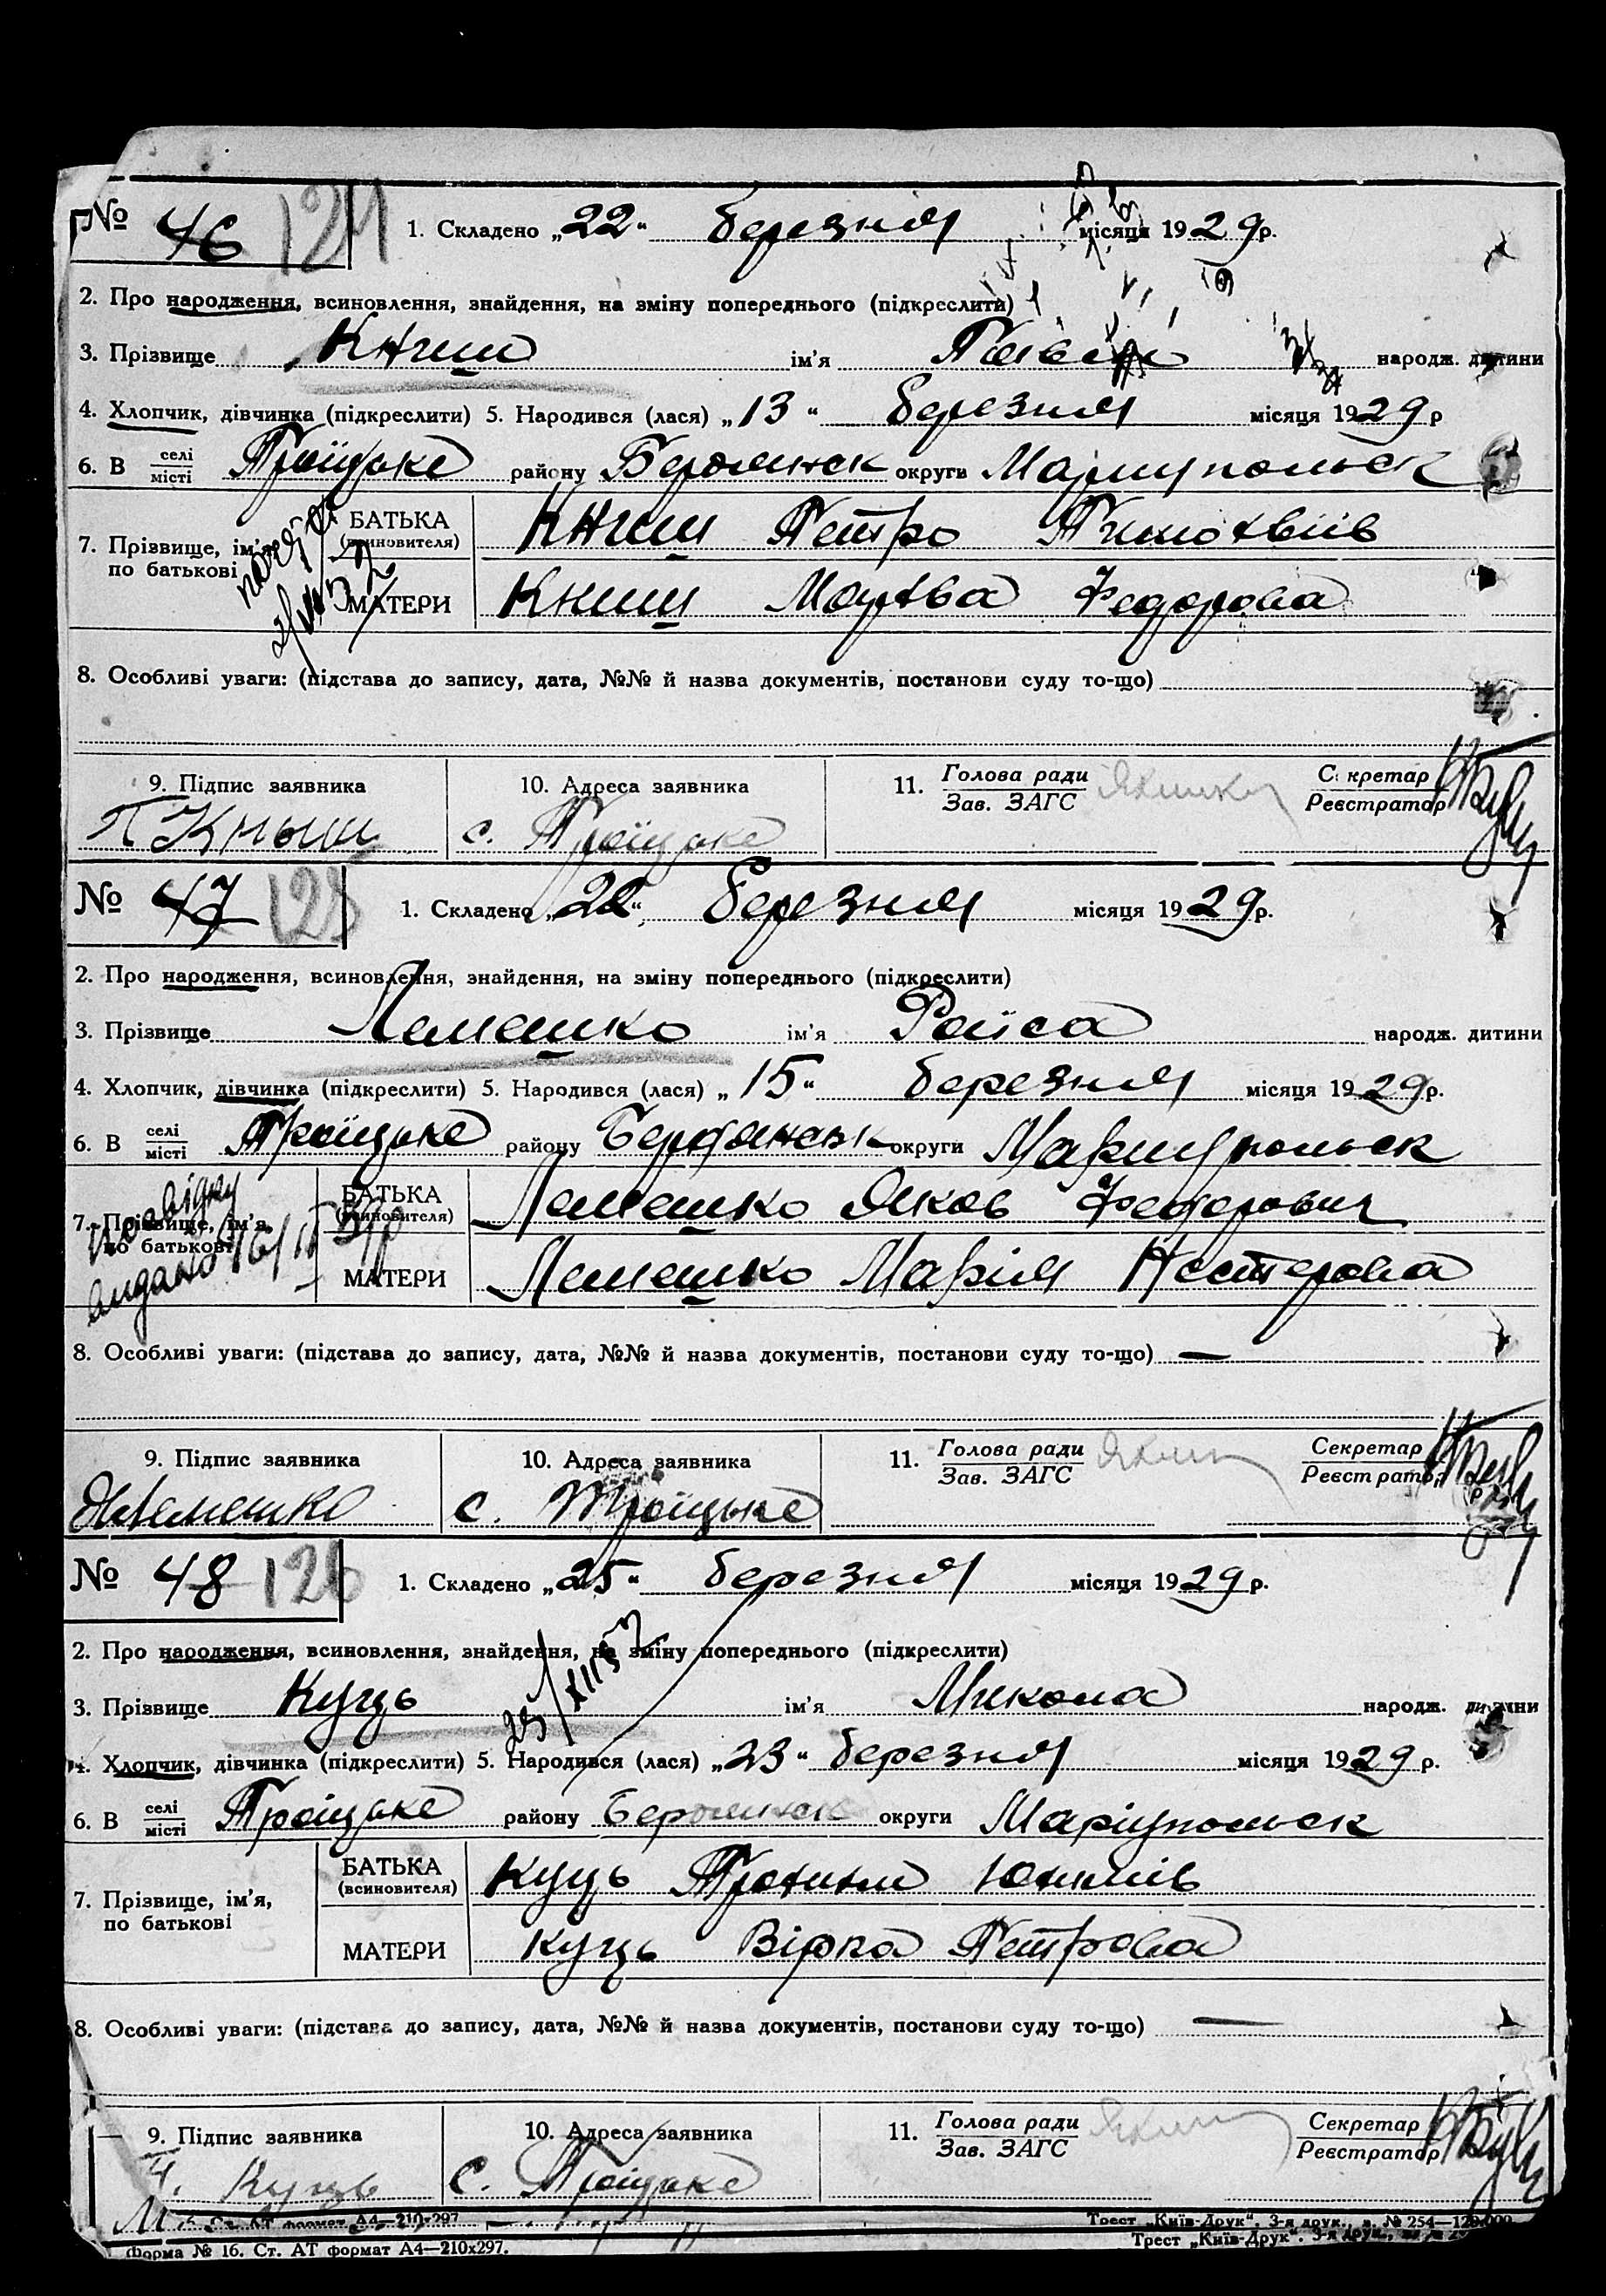 № 46 124 1. Складено „22“ березня місяця 1929р.
2. Про народження, всиновлення, знайдення, на зміну попереднього (підкреслити)
3. Прізвище Книш ім'я народж. дитини
4. Хлопчик, дівчинка (підкреслити) 5. Народився (лася) „13“ березня місяця 1929р
6. В селі/місті Троїцьке району Бердянськ округи Маріупольськ
7. Прізвище, ім'я, по батькові
БАТЬКА (всиновителя) Книш Петро Тимохвіїв
МАТЕРИ Книш Мархва Федорова
8. Особливі уваги: (підстава до запису, дата, №№ й назва документів, постанови суду то-що)
9. Підпис заявника 10. Адреса заявника 11. Голова ради/Зав. ЗАГС Секретар/Реєстратор
П Кныш с. Троїцьке
№ 47 125 1. Складено „22“ березня місяця 1929р.
2. Про народження, всиновлення, знайдення, на зміну попереднього (підкреслити)
3. Прізвище Лемешко ім'я Раїса народж. дитини
4. Хлопчик, дівчинка (підкреслити) 5. Народився (лася) „15“ березня місяця 1929р.
6. В селі/місті Троїцьке району Бердянськ округи Маріупольськ
7. Прізвище, ім'я, по батькові
БАТЬКА (всиновителя) Лемешко Яков Федорович
МАТЕРИ Лемешко Марія Нестерова
посвідку
видано 16/
8. Особливі уваги: (підстава до запису, дата, №№ й назва документів, постанови суду то-що) —
9. Підпис заявника 10. Адреса заявника 11. Голова ради/Зав. ЗАГС Секретар/Реєстратор
ЯЛемешко с. Троїцьке
№ 48 126 1. Складено „25“ березня місяця 1929р.
2. Про народження, всиновлення, знайдення, на зміну попереднього (підкреслити)
3. Прізвище Куць ім'я Микола народж. дитини
4. Хлопчик, дівчинка (підкреслити) 5. Народився (лася) „23“ березня місяця 1929р.
6. В селі/місті Троїцьке району Бердянськ округи Маріупольськ
7. Прізвище, ім'я, по батькові
БАТЬКА (всиновителя) Куць Трохим Юхимів
МАТЕРИ Куць Вірка Петрова
8. Особливі уваги: (підстава до запису, дата, №№ й назва документів, постанови суду то-що) —
9. Підпис заявника 10. Адреса заявника 11. Голова ради/Зав. ЗАГС Секретар/Реєстратор
Куць с. Троїцьке
Ст. АТ формат А4—210х297 Трест „Київ-Друк“. 3-я друк., № 254—120.000
Форма № 16. Ст. АТ формат А4—210х297. Трест „Київ-Друк“. 3-я друк.,